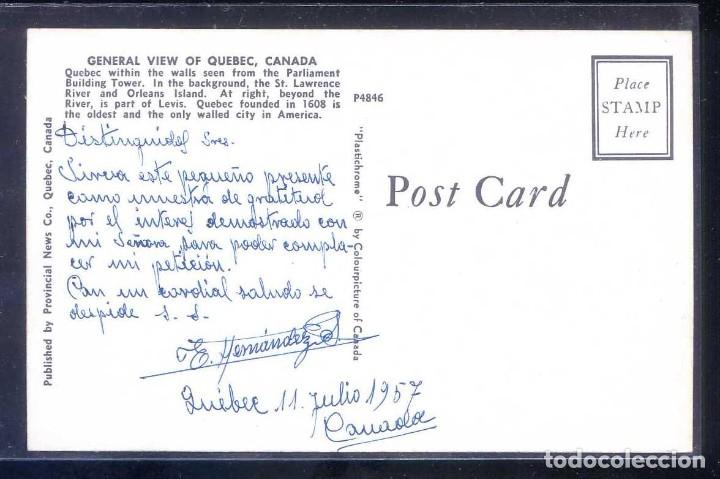 GENERAL VIEW OF QUEBEC, CANADA
Quebec within the walls seen from the Parliament
Building Tower. In the background, the St. Lawrence
River and Orleans Island. At right, beyond the
River, is part of Levis. Quebec founded in 1608 is
the oldest and the only walled city in America.
P4846
Place
STAMP
Here
Published by Provincial News Co., Quebec, Canada
"Plastichrome" ® by Colourpicture of Canada
Post Card
Distinguidos Sres.
Sirva este pequeño presente
como muestra de gratitud
por el interes demostrado con
mi Señora para poder compla-
cer mi petición.
Con un cordial saludo se
despide s. s.
E. Hernández S.
Québec 11 Julio 1957
Canada
todocoleccion.net